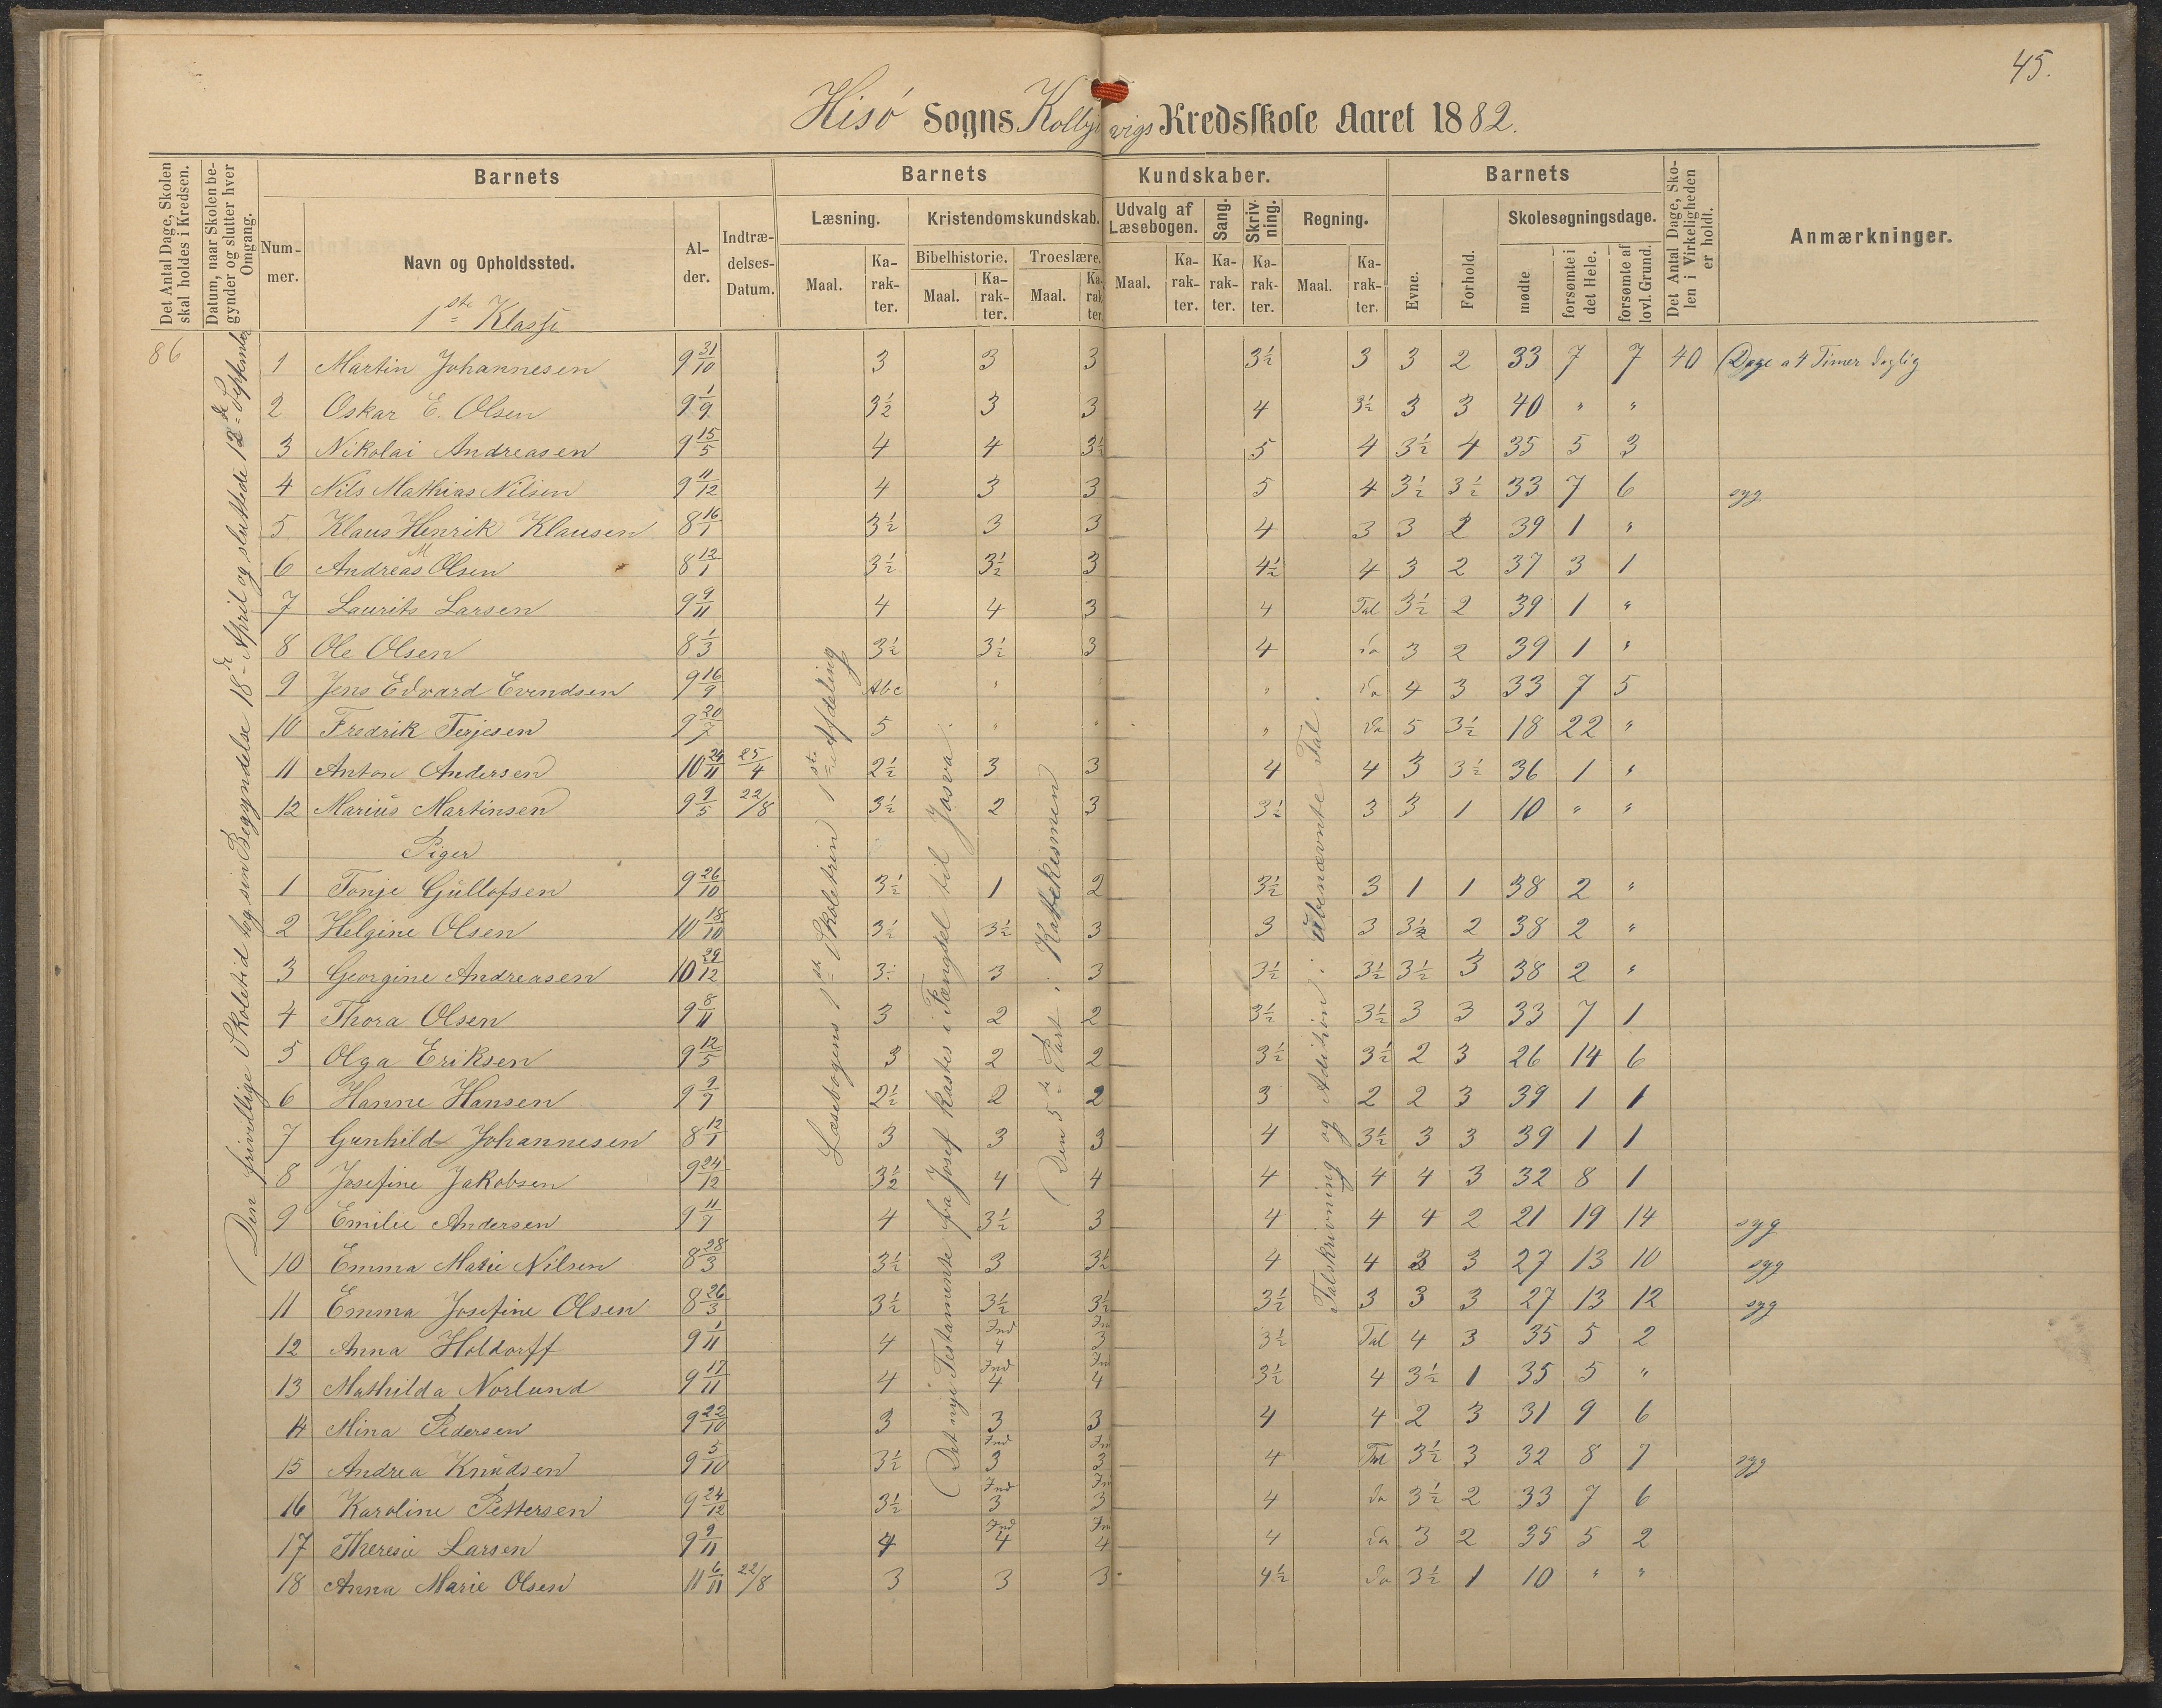 45.
Hisö Sogns Kolbjvigs Kredsskole Aaret 1882.
Det Antal Dage, Skolen skal holdes i Kredsen.
Datum, naar Skolen begynder og slutter hver Omgang.
Barnets
Nummer.
Navn og Opholdssted.
Alder.
Indtrædelses-Datum.
Barnets Kundskaber.
Læsning.
Maal.
Karakter.
Kristendomskundskab.
Bibelhistorie.
Maal.
Karakter.
Troeslære.
Maal.
Karakter.
Udvalg af Læsebogen.
Maal.
Karakter.
Sang.
Karakter.
Skrivning.
Karakter.
Regning.
Maal.
Karakter.
Barnets
Evne.
Forhold.
Skolesøgningsdage.
mødte
forsømte i det Hele.
forsømte af lovl. Grund.
Det Antal Dage, Skolen i Virkeligheden er holdt.
Anmærkninger.
1ste Klasse
86
Den frivillige Skoletid tog sin Begyndelse 18de April og sluttede 12te September
Læsebogens 1ste Skoletrin 1ste Afdeling
Det nye Testamente fra Josef kastes i Fængsel til Josva.
Den 5te Part i Katekismen
Talskrivning og Adition i ubenævnte Tal.
1 Martin Johannesen 9 31/10 3 3 3 3½ 3 3 2 33 7 7 40 Dage a 4 Timer daglig
2 Oskar E. Olsen 9 1/9 3½ 3 3 4 3½ 3 3 40 " "
3 Nikolai Andreasen 9 15/5 4 4 3½ 5 4 3½ 4 35 5 3
4 Nils Mathias Nilsen 9 11/12 4 3 3 5 4 3½ 3½ 33 7 6 syg
5 Klaus Henrik Klausen 8 16/1 3½ 3 3 4 3 3 2 39 1 "
6 Andreas M Olsen 8 12/1 3½ 3½ 3 4½ 4 3 2 37 3 1
7 Laurits Larsen 9 9/11 4 4 3 4 Tal 3½ 2 39 1 "
8 Ole Olsen 8 1/3 3½ 3½ 3 4 do 3 2 39 1 "
9 Jens Edvard Evendsen 9 16/9 Abc " " " do 4 3 33 7 5
10 Fredrik Terjesen 9 20/7 5 " " " do 5 3½ 18 22 "
11 Anton Andersen 10 24/11 25/4 2½ 3 3 4 4 3 3½ 36 1 "
12 Marius Martinsen 9 9/5 22/8 3½ 2 3 3½ 3 3 1 10 " "
Piger
1 Tonje Gullofsen 9 26/10 3½ 1 2 3½ 3 1 1 38 2 "
2 Helgine Olsen 10 18/10 3½ 3½ 3 3 3 3½ 2 38 2 "
3 Georgine Andreasen 10 29/12 3½ 3 3 3½ 3½ 3½ 3 38 2 "
4 Thora Olsen 9 8/11 3 2 2 3½ 3½ 3 3 33 7 1
5 Olga Eriksen 9 12/5 3 2 2 3½ 3½ 2 3 26 14 6
6 Hanne Hansen 9 9/7 2½ 2 2 3 2 2 3 39 1 1
7 Gunhild Johannesen 8 12/1 3 3 3 4 3½ 3 3 39 1 1
8 Josefine Jakobsen 9 24/12 3½ 4 4 4 4 4 3 32 8 1
9 Emilie Andersen 9 11/7 4 3½ 3 4 4 4 2 21 19 14 syg
10 Emma Marie Nilsen 8 28/3 3½ 3 3½ 4 4 3 3 27 13 10 syg
11 Emma Josefine Olsen 8 26/3 3½ 3½ 3½ 3½ 3 3 3 27 13 12 syg
12 Anna Holdorff 9 1/11 4 Ind 4 In 3 3½ Tal 4 3 35 5 2
13 Mathilda Norlund 9 17/11 4 Ind 4 In 4 3½ 4 3½ 1 35 5 "
14 Mina Pedersen 9 22/10 3 3 3 4 4 2 3 31 9 6
15 Andrea Knudsen 9 5/10 3½ Ind 3 In 3 4 Tal 3½ 3 32 8 7 syg
16 Karoline Pettersen 9 24/12 3½ Ind 3 In 3 4 do 3½ 2 33 7 6
17 Theresie Larsen 9 9/11 4 Ind 4 In 4 4 do 3 2 35 5 2
18 Anna Marie Olsen 11 6/11 22/8 3 3 3 4½ do 3½ 1 10 " "